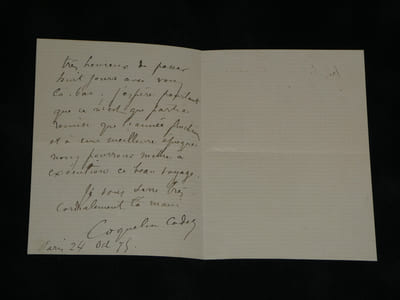 très heureux de passer
huit jours avec vous
là-bas, j'espère pourtant
que ce n'est que partie
remise que l'année prochaine
et à une meilleure époque
nous pourrons mettre à
exécution ce beau voyage.
Je vous serre très
cordialement la main
Coquelin Cadet
Paris 24 Oct 75.